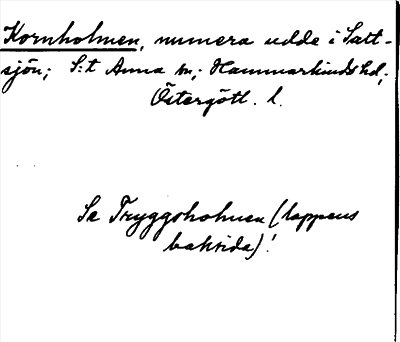 Kornholmen, numera udde i Satt-
sjön; S:t Anna sn; Hammarkinds hd;
Östergötl. l.
Se Tryggoholmen (lappens
baksida)!